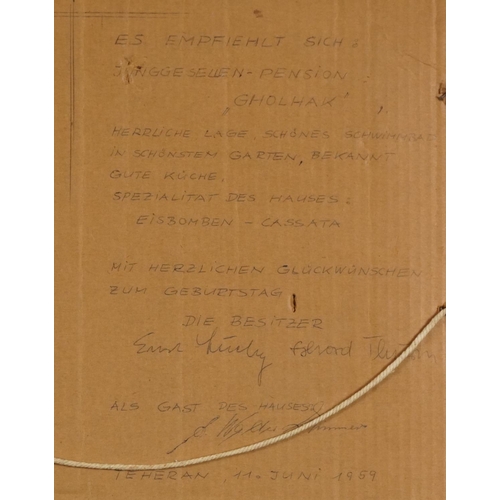 ES EMPFIEHLT SICH:
JUNGGESELLEN-PENSION:
"GHOLHAK",
HERRLICHE LAGE, SCHÖNES SCHWIMMBAD
IN SCHÖNSTEM GARTEN, BEKANNT
GUTE KÜCHE.
SPEZIALITÄT DES HAUSES:
EISBOMBEN - CASSATA
MIT HERZLICHEN GLÜCKWÜNSCHEN
ZUM GEBURTSTAG
DIE BESITZER
ALS GAST DES HAUSES:
TEHERAN, 11. JUNI 1959